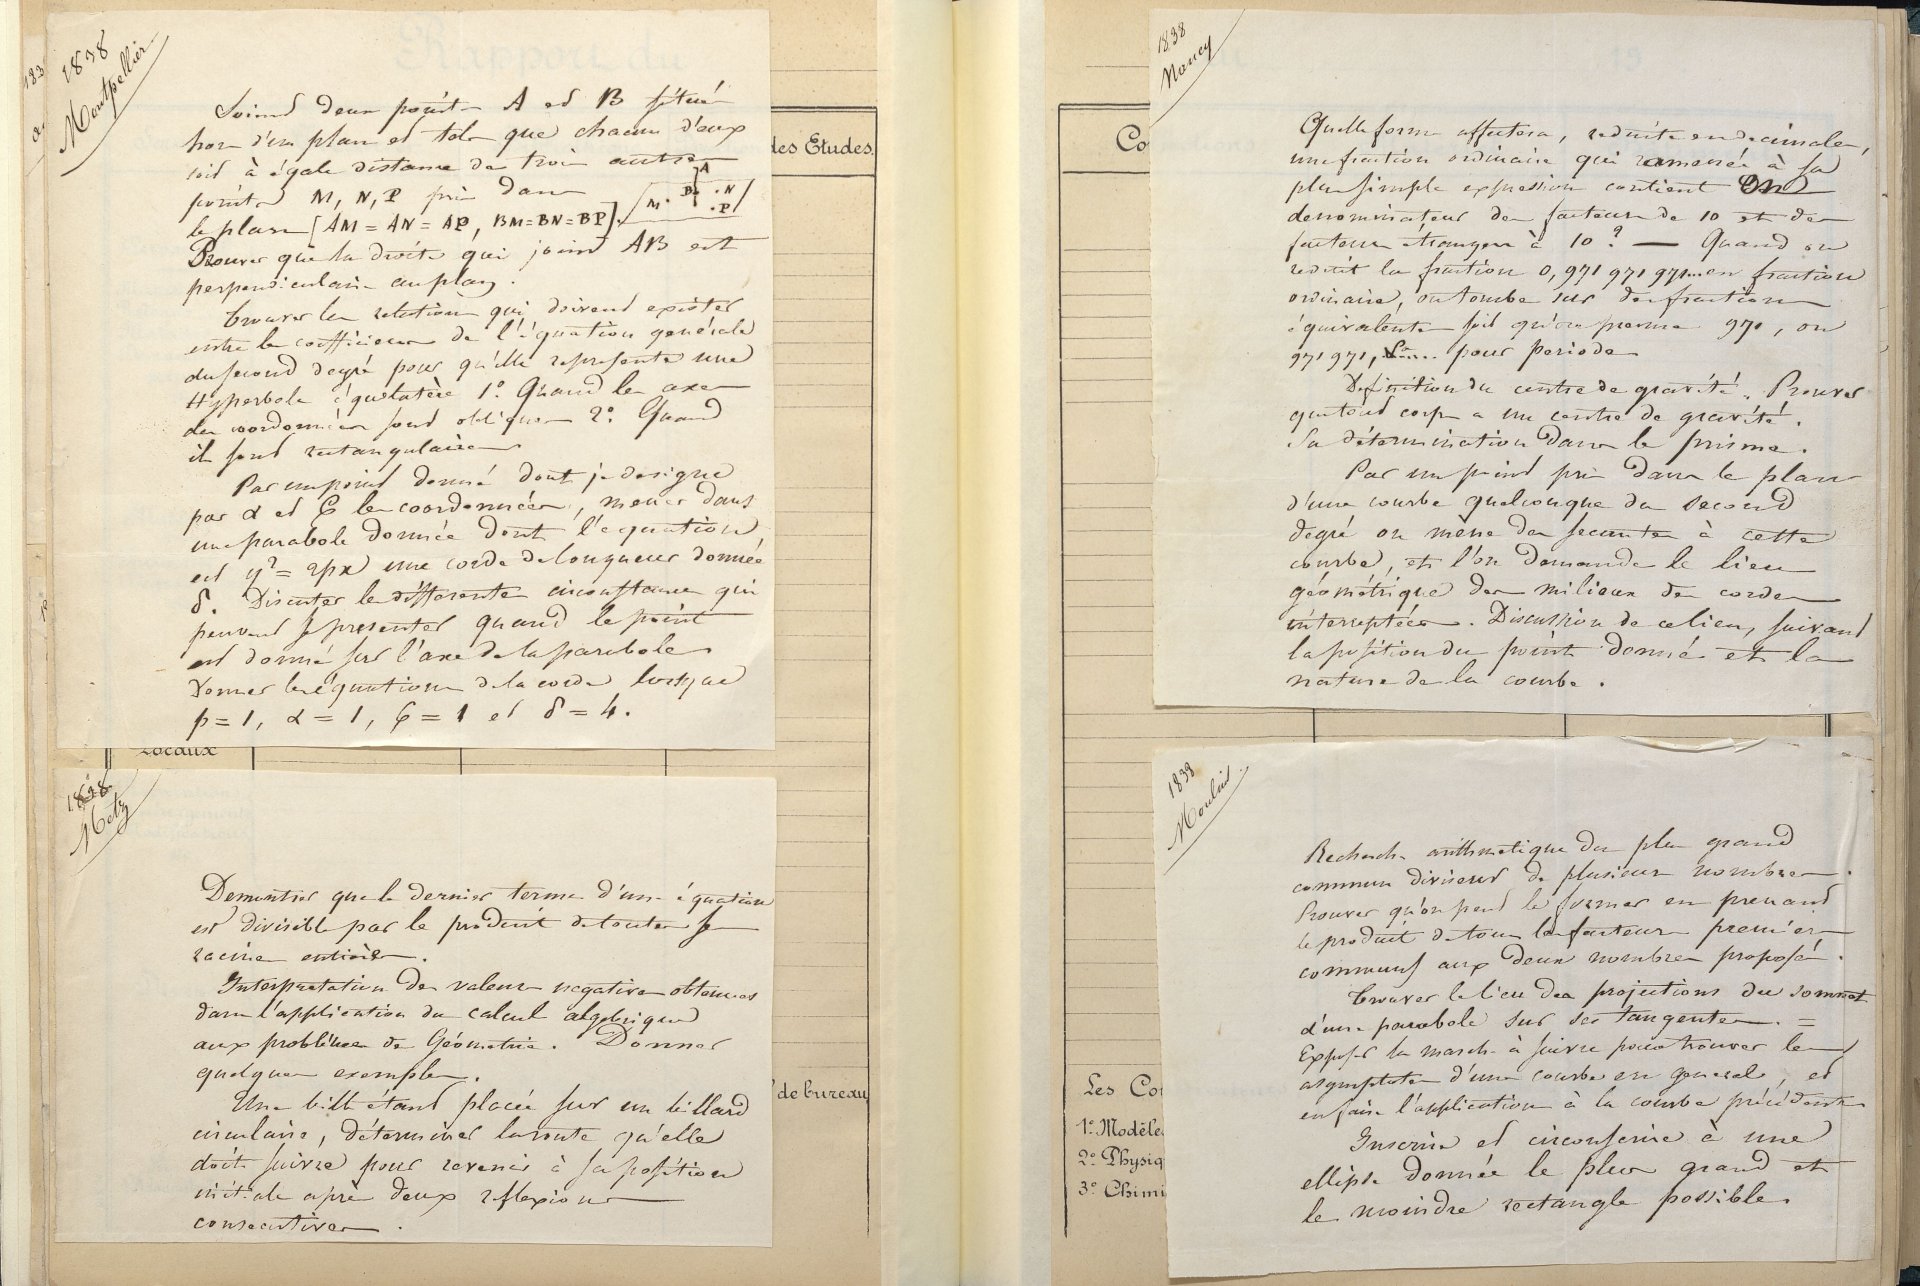 1838
Montpellier
183
Soient deux points A et B situés
hors d'un plan et tels que chacun d'eux
soit à égale distance de trois autres
points M, N, P pris dans
le plan [AM = AN = AP, BM = BN = BP].
A
M. B .N
.P
Prouver que la droite qui joint AB est
perpendiculaire au plan.
Trouver les relations qui doivent exister
entre les coefficiens de l'équation générale
du second degré pour qu'elle représente une
Hyperbole équilatère 1º. Quand les axes
des coordonnées sont obliques 2º. Quand
ils sont rectangulaires
Par un point donné dont je désigne
par α et ϐ les coordonnées, mener dans
une parabole donnée dont l'équation
est y² = 2px une corde de longueur donnée
δ. Discuter les différentes circonstances qui
peuvent se présenter quand le point
est donné sur l'axe de la parabole.
Donner les équations de la corde lorsque
p = 1, α = 1, ϐ = 1 et δ = 4.
des Etudes.
Locaux
1838
Metz
Demontrer que le dernier terme d'une équation
est divisible par le produit de toutes ses
racines entières.
Interpretation des valeurs negatives obtenues
dans l'application du calcul algebrique
aux problèmes de Géométrie. Donner
quelques exemples.
Une bille étant placée sur un billard
circulaire, déterminer la route qu'elle
doit suivre pour revenir à sa position
initiale après deux reflexions
consecutives.
de bureau
1838
Nancy
Quelle forme affectera, reduite en decimales,
une fraction ordinaire qui ramenée à sa
plus simple expression contient en
denominateur des facteurs de 10 et des
facteurs étrangers à 10? — Quand on
reduit la fraction 0,971 971 971... en fraction
ordinaire, on tombe sur des fractions
équivalentes soit qu'on prenne 971, ou
971 971, &a... pour periode
Definition du centre de gravité. Prouver
que tout corps a un centre de gravité.
Sa détermination dans le prisme.
Par un point pris dans le plan
d'une courbe quelconque du second
degré on mène des sécantes à cette
courbe, et l'on demande le lieu
géométrique des milieux des cordes
interceptées. Discussion de ce lieu, suivant
la position du point donné et la
nature de la courbe.
Co
1838
Moulins
Recherche arithmetique du plus grand
commun diviseur de plusieurs nombres.
Prouver qu'on peut le former en prenant
le produit de tous les facteurs premiers
communs aux deux nombres proposés.
Trouver le lieu des projections du sommet
d'une parabole sur ses tangentes. =
Exposer la marche à suivre pour trouver les
asymptotes d'une courbe en general, et
en faire l'application à la courbe précédente
Inscrire et circonscrire à une
ellipse donnée le plus grand et
le moindre rectangle possible.
Les Co
1º. Modèle
2º. Physiq
3º. Chimi